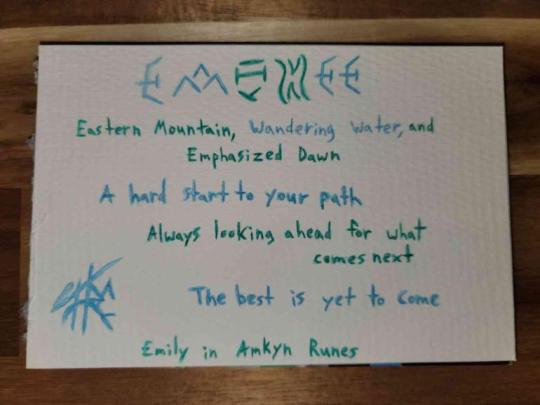 Eastern Mountain, Wandering Water, and
Emphasized Dawn
A hard start to your path
Always looking ahead for what
comes next
The best is yet to come
Emily in Amkyn Runes